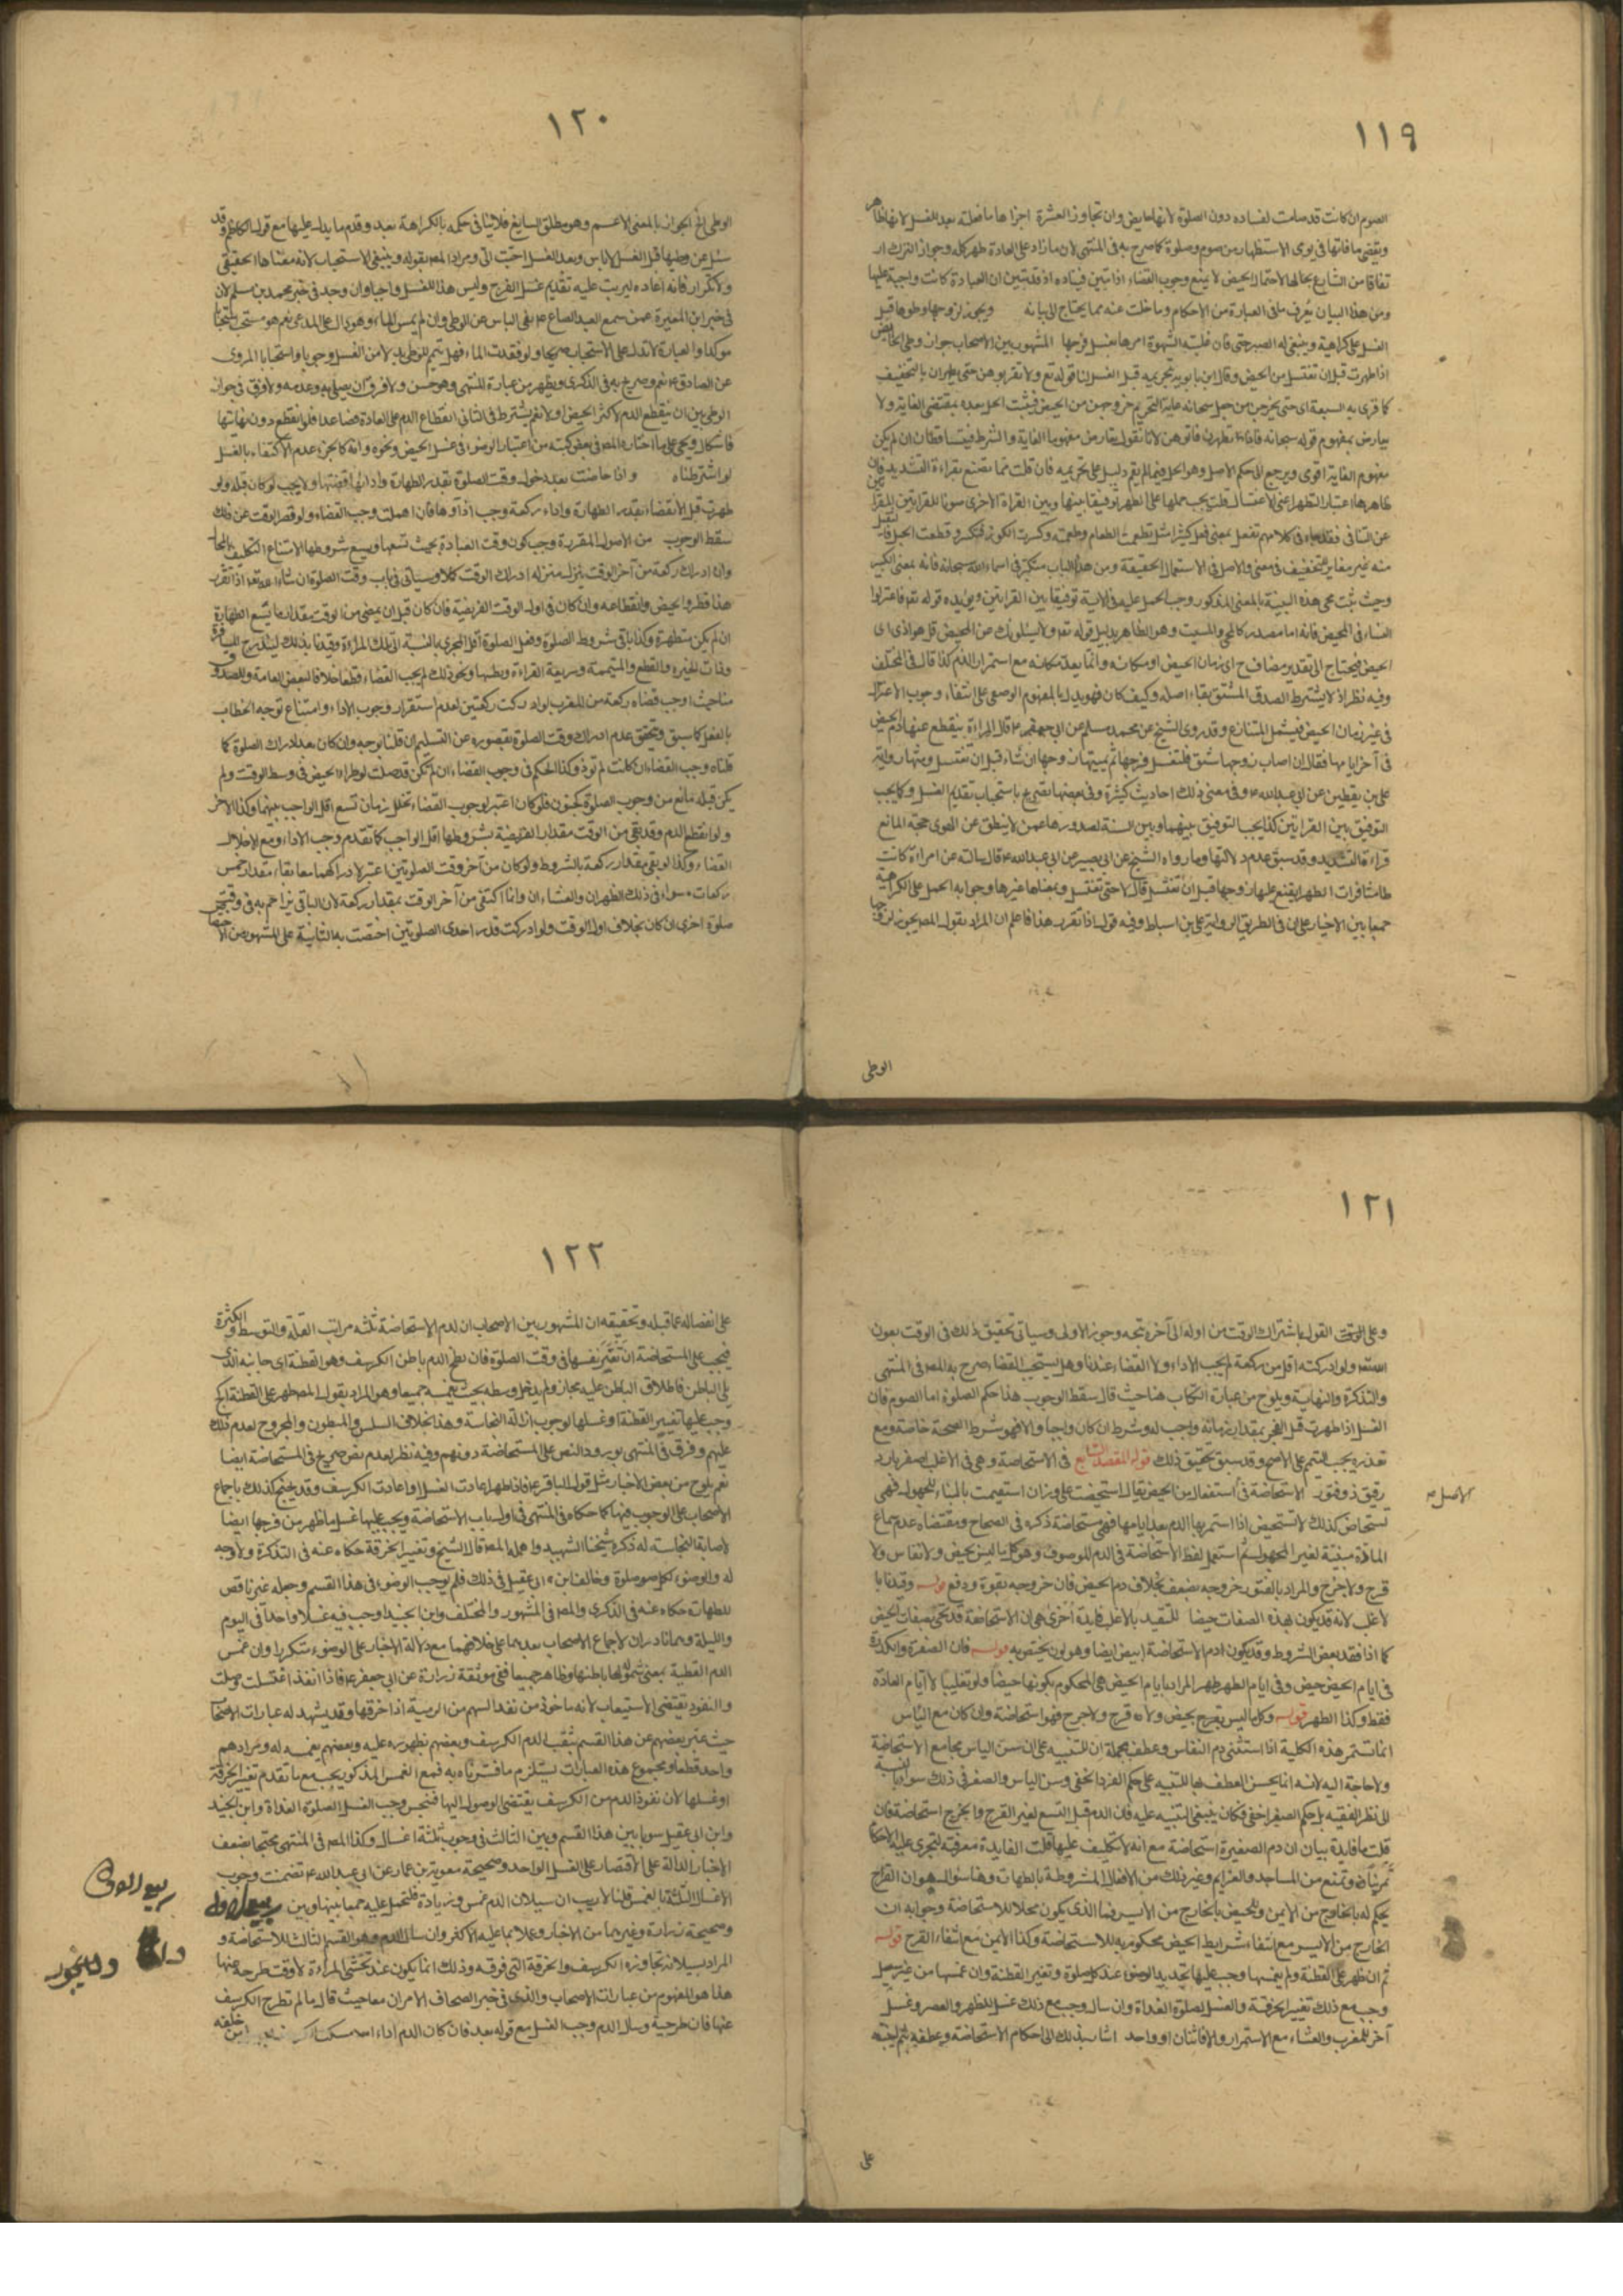 ١١٩
الصوم ان كانت قد صامت لفساده دون الصلوة لانها حايض وان تجاوز العشرة اجزاها ما فعلته بعد الغسل لانها ظاهر
وتقضى ما فاتها في يومى الاستظهار من صوم وصلوة كما صرح به في المنتهى لان ما زاد على العادة طهر كله وجواز الترك ار
تفاقا من الشارع بحالها لاحتمال الحيض لا يمنع وجوب القضاء اذا تبين فساده اذ قد تبين ان العبادة كانت واجبة عليها
ومن هذا البيان يعرف ما في العبارة من الاحكام وما خلت عنه مما يحتاج الى بيانه ويجوز لزوجها وطوها قبل
الغسل على كراهية وينبغى له الصبر حتى فان غلبته الشهوة امرها بغسل فرجها المشهور بين الاصحاب جواز وطى الحائض
اذا طهرت قبل ان تغتسل من الحيض وقال ابن بابويه بتحريمه قبل الغسل لنا قوله تع ولا تقربوهن حتى يطهرن بالتخفيف
كما قرء به السبعة اى حتى يخرجن من الحيض جعل سبحانه غاية التحريم خروجهن من الحيض فيثبت الحل بعده بمقتضى الغاية ولا
يعارض بمفهوم قوله سبحانه فاذا تطهرن فاتوهن لانا نقول تعارض مفهوما الغاية والشرط فيتساقطان ان لم يكن
مفهوم الغاية اقوى ويرجع الى حكم الاصل وهو الحل فيما لم يقم دليل على تحريمه فان قلت فما تصنع بقراءة التشديد فان
ظاهرها اعتبار التطهر اعنى الاغتسال قلت يجب حملها على الطهر توفيقا بينها وبين القراءة الاخرى صونا للقرائتين
عن التنافى فقد جاء في كلامهم تفعل بمعنى فعل كثيرا مثل تطعمت الطعام وطعمته وكسرت الكوز فتكسر وقطعت الحبل فتقطع
وحيث ثبت مجئ هذه البنية بالمعنى المذكور وجب الحمل عليه في الاية توفيقا بين القرائتين ويؤيده قوله تعه فاعتزلوا
النساء في المحيض فانه اما مصدر كالمجئ والمبيت وهو الظاهر بدليل قوله تعه ويسئلونك عن المحيض قل هو اذى اى
الحيض فيحتاج الى تقدير مضاف ح اى زمان الحيض او مكانه وانما يعد مكانه مع استمرار الدم كذا قال في المختلف
وفيه نظر اذ لا يشترط لصدق المشتق بقاء اصله وكيف كان فهو يدل بالمفهوم الوصفى على انتفاء وجوب الاعتزال
في غير زمان الحيض فيشمل المتنازع وقد روى الشيخ عن محمد بن مسلم عن ابى جعفر ع قال المراة ينقطع عنها دم الحيض
في آخر ايامها فقال ان اصاب زوجها شبق فلتغسل فرجها ثم يمسها زوجها ان شاء قبل ان تغتسل ومثلها رواية
على بن يقطين عن ابى عبد الله ع وفي معنى ذلك احاديث كثيرة وفي بعضها تصريح باستحباب تقديم الغسل وكما يجب
التوفيق بين القرائتين كذا يجب التوفيق بينهما وبين السنة لصدورها عمن لا ينطق عن الهوى حجة المانع
قراءة التشديد وقد سبق عدم دلالتها وما رواه الشيخ عن ابى بصير عن ابى عبد الله ع قال سالته عن امراة كانت
طامثا فرات الطهر ايقع عليها زوجها قبل ان تغتسل قال لا حتى تغتسل وبمعناها غيرها وجوابه الحمل على الكراهية
جمعا بين الاخبار على ان في الطريق الرواية على بن اسباط وفيه قول اذا تقرر هذا فاعلم ان المراد بقول المصر يجوز لزوجها
الوطى
١٢٠
الوطى الخ الجواز بالمعنى الاعم وهو مطلق السايغ فلا ينافى حكمه بالكراهة بعد وقدم ما يدل عليها مع قول الكاظم ع وقد
سئل عن وطيها قبل الغسل لا باس وبعد الغسل احب الى ومراد المصر بقوله وينبغى الاستحباب لانه معناها الحقيقى
ولا تكرار فانه اعاده ليرتب عليه تقديم غسل الفرج وليس هذا الغسل واجبا وان وجد في خبر محمد بن مسلم لان
في خبر ابن المغيرة عمن سمع العبد الصالح ع نفى الباس عن الوطى وان لم يمس الماء وهو دال على المدعى نعم هو مستحب استحبابا
موكدا والعبارة لا تدل على الاستحباب صريحا ولو فقدت الماء فهل تتيمم للوطى بدلا من الغسل وجوبا واستحبابا المروى
عن الصادق ع نعم وصرح به في الذكرى ويظهر من عبارة المنتهى وهو حسن ولا فرق ان يصلى به وعدمه ولا فرق في جواز
الوطى بين ان ينقطع الدم لاكثر الحيض او لا نعم يشترط في الثانى انقطاع الدم على العادة فصاعدا فلو انقطع دون نهايتها
لو اشترطناه واذا حاضت بعد دخول وقت الصلوة بقدر الطهارة وادائها قضتها ولا يجب لو كان قبله ولو
طهرت قبل الانقضاء بقدر الطهارة واداء ركعة وجب اداؤها فان اهملت وجب القضاء ولو قصر الوقت عن ذلك
سقط الوجوب من الاصول المقررة وجوب كون وقت العبادة بحيث تسعها ويسع شروطها لامتناع التكليف بالمحال
وان ادراك ركعة من آخر الوقت ينزل منزلة ادراك الوقت كملا وسياتى في باب وقت الصلوة ان شاء الله تعه اذا تقرر
هذا فطروا الحيض وانقطاعه وان كان في اول الوقت الفريضة فان كان قبل ان يمضى من الوقت مقدار ما يسع الطهارة
ان لم يكن متطهرة وكذا باقى شروط الصلوة وفعل الصلوة اقل المجزى بالنسبة الى تلك المراءة وقيدنا بذلك ليندرج المسافرة
مناحيث اوجب قضاء ركعة من المغرب لو ادركت ركعتين لعدم استقرار وجوب الاداء وامتناع توجه الخطاب
بالفعل كما سبق ويتحقق عدم ادراك وقت الصلوة بقصوره عن التسليم ان قلنا بوجوبه وان كان بعد ادراك الصلوة كما
قلناه وجب القضاء ان كانت لم تؤد وكذا الحكم في وجوب القضاء ان لم تكن قد صلت لو طرا الحيض في وسط الوقت ولم
يكن قبله مانع من وجوب الصلوة كجنون فلو كان اعتبر لوجوب القضاء تخلل زمان تسع اقل الواجب بينهما وكذا الاخر
ولو انقطع الدم وقد بقى من الوقت مقدار الفريضة بشروطها اقل الواجب كما تقدم وجب الاداء ومع الاخلال
القضاء وكذا لو بقى مقدار ركعة بالشروط ولو كان من آخر وقت الصلوتين اعتبر لادراكهما معا بقاء مقدار خمس
ركعات سواء في ذلك الظهران والعشاءان وانما اكتفى من آخر الوقت بمقدار ركعة لان الباقى يزاحم به في وقتى
صلوة اخرى ان كان بخلاف اول الوقت ولو ادركت قدر احدى الصلوتين اختصت به الثانية على المشهور من الاختصاص
١٢١
وعلى القول باشتراك الوقت من اوله الى آخره يتجه وجوب الاولى وسياتى تحقيق ذلك في الوقت بعون
الله تعه ولو ادركته اقل من ركعة لم يجب الاداء ولا القضاء عندنا وهل يستحب القضاء صرح به المصر في المنتهى
والتذكرة والنهاية ويلوح من عبارة الكتاب هنا حيث قال سقط الوجوب هذا حكم الصلوة اما الصوم فان
الغسل اذا طهرت قبل الفجر بمقدار زمانه واجب له وشرط ان كان واجبا والا فهو شرط الصحة خاصة ومع
تعذره يجب التيمم على الاصح وقد سبق تحقيق ذلك قوله المقصد السابع في الاستحاضة وهى في الاغلب اصفر بارد
رقيق ذو فتور الاستحاضة في استفعال من الحيض يقال استحيضت على وزان استقيمت بالبناء للمجهول فهى
تستحاض كذلك لا تستحيض اذا استمر بها الدم بعد ايامها فهى مستحاضة ذكره في الصحاح ومقتضاه عدم سماع
المادة مبنية لغير المجهول ثم استعمل لفظ الاستحاضة في الدم الموصوف وهو كل ما ليس بحيض ولا نفاس ولا
قرح ولا جرح والمراد بالفتور خروجه بضعف بخلاف دم الحيض فان خروجه بقوة ودفع قوله وقيدنا با
لاغلب لانه قد يكون بهذه الصفات حيضا للتقييد بالاغلب فايدة اخرى هى ان الاستحاضة قد تجئ بصفات الحيض
كما اذا فقد بعض الشروط وقد يكون دم الاستحاضة ابيض ايضا وهو لون يختص به قوله فان الصفرة والكدرة
في ايام الحيض حيض وفي ايام الطهر طهر المراد بايام الحيض هى المحكوم بكونها حيضا ولو تغليبا لا ايام العادة
فقط وكذا الطهر قوله وكل ما ليس بحيض ولا قرح ولا جرح فهو استحاضة وان كان مع الياس
انما تستمر هذه الكلية اذا استثنى دم النفاس وعطف بجملة ان للتنبيه على ان سن الياس يجامع الاستحاضة
ولا حاجة اليه لانه انما يحسن العطف بها للتنبيه على حكم الفرد الخفى وسن الياس والصغر في ذلك سواء بالنسبة
الى نظر الفقيه بل حكم الصغر اخفى فكان ينبغى التنبيه عليه فان الدم قبل التسع لغير القرح والجرح استحاضة فان
قلت ما فايدة بيان ان دم الصغيرة استحاضة مع انه لا تكليف عليها قلت الفايدة معرفته لتجرى عليه الاحكام
تمرينا وتمنع من المساجد والعزايم وغير ذلك من الافعال المشروطة بالطهارة وهنا سؤال هو ان القرح
يحكم له بالخارج من الايمن وللحيض بالخارج من الايسر فما الذى يكون محلا للاستحاضة وجوابه ان
الخارج من الايسر مع انتفاء شرايط الحيض محكوم به للاستحاضة وكذا الايمن مع انتفاء القرح قوله
ثم ان ظهر على القطنة ولم يغمسها وجب عليها تجديد الوضوء عند كل صلوة وتغير القطنة وان غمسها من غير سيل
وجب مع ذلك تغيير الخرقة والغسل لصلوة الغداة وان سال وجب مع ذلك غسل للظهر والعصر وغسل
آخر للمغرب والعشاء مع الاستمرار والا فاثنان او واحد اشار بذلك الى احكام الاستحاضة وعطفه بثم لينبه
على
١٢٢
على انفصاله عما قبله وتحقيقه ان المشهور بين الاصحاب ان لدم الاستحاضة ثلثة مراتب القلة والتوسط والكثرة
فيجب على المستحاضة ان تعتبر نفسها في وقت الصلوة فان لطخ الدم باطن الكرسف وهو القطنة اى جانبه الذى
يلى الباطن فاطلاق الباطن عليه مجاز ولم يدخل وسطه بحيث يغمسه جميعا وهو المراد بقول المصر ظهر على القطنة
وجب عليها تغيير القطنة او غسلها لوجوب ازالة النجاسة وهذا بخلاف السلس والمبطون والمجروح لعدم ذلك
عليهم وفرق في المنتهى بورود النص على المستحاضة دونهم وفيه نظر لعدم نص صريح في المستحاضة ايضا
نعم يلوح من بعض الاخبار مثل قول الباقر ع فاذا ظهر اعادت الغسل واعادت الكرسف وقد يحتج كذلك باجماع
الاصحاب على الوجوب فيها كما حكاه في المنتهى في اول باب الاستحاضة ويجب عليها غسل ما ظهر من فرجها ايضا
لاصابة النجاسة له ذكره شيخنا الشهيد واهمله المصر قال الشيخ وتغيير الخرقة حكاه عنه في التذكرة ولا وجه
له والوضوء لكل صلوة وخالف ابن ابى عقيل في ذلك فلم يوجب الوضوء في هذا القسم وجعله غير ناقض
للطهارة حكاه عنه في الذكرى والمصر في المشهور والمختلف وابن الجنيد اوجب فيه غسلا واحدا في اليوم
والليلة وهما نادران لاجماع الاصحاب بعدهما على خلافهما مع دلالة الاخبار على الوضوء متكررا وان غمس
الدم القطنة بمعنى شموله لها باطنها وظاهرها جميعا ففى موثقة زرارة عن ابى جعفر ع فاذا نفذ اغتسلت وصلت
والنفوذ يقتضى الاستيعاب لانه ماخوذ من نفذ السهم من الرمية اذا خرقها وقد يشهد له عبارات الاصحاب
حيث عبر بعضهم عن هذا القسم بثقب الدم الكرسف وبعضهم بظهوره عليه وبعضهم بغمسه له ومرادهم
واحد قطعا ومجموع هذه العبارات يستلزم ما فسرناه به فمع الغمس المذكور يجب مع ما تقدم تغيير الخرقة
او غسلها لان نفوذ الدم من الكرسف يقتضى الوصول اليها فتنجس ووجب الغسل لصلوة الغداة وابن الجنيد
وابن ابى عقيل سويا بين هذا القسم وبين الثالث في وجوب ثلثة اغسال وكذا المصر في المنتهى محتجا بضعف
الاخبار الدالة على الاقتصار على الغسل الواحد وصحيحة معوية بن عمار عن ابى عبد الله ع تضمنت وجوب
الاغسال الثلثة بالغمس قلنا لا ريب ان سيلان الدم غمس وزيادة فتحمل عليه جمعا بينها وبين
وصحيحة زرارة وغيرهما من الاخبار وعملا بما عليه الاكثر وان سال الدم وهو القسم الثالث للاستحاضة و
المراد بسيلانه تجاوزه الكرسف والخرقة التى فوقه وذلك انما يكون عند تحشى المراءة لا وقت طرحه عنها
هذا هو المفهوم من عبارات الاصحاب والذى في خبر الصحاف الامران معا حيث قال ما لم تطرح الكرسف
عنها فان طرحته وسال الدم وجب الغسل مع قوله بعد فان كان الدم اذا امسكت الكرسف